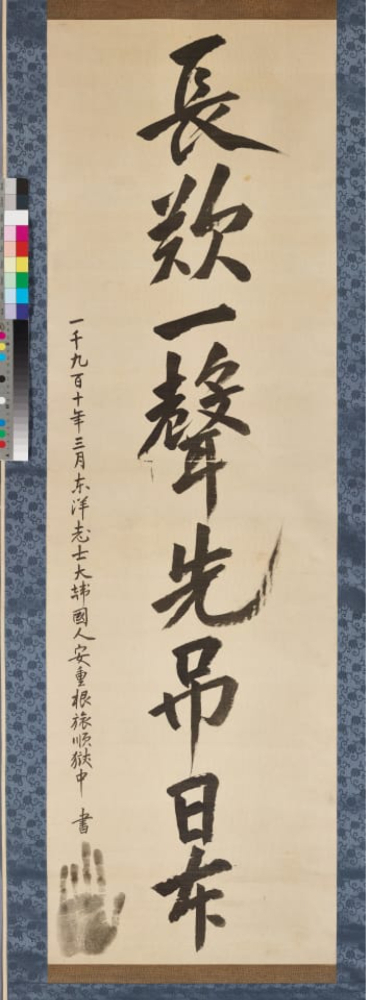 長歎一聲先吊日本
一千九百十年三月 东洋志士大韩國人安重根 旅順獄中 書